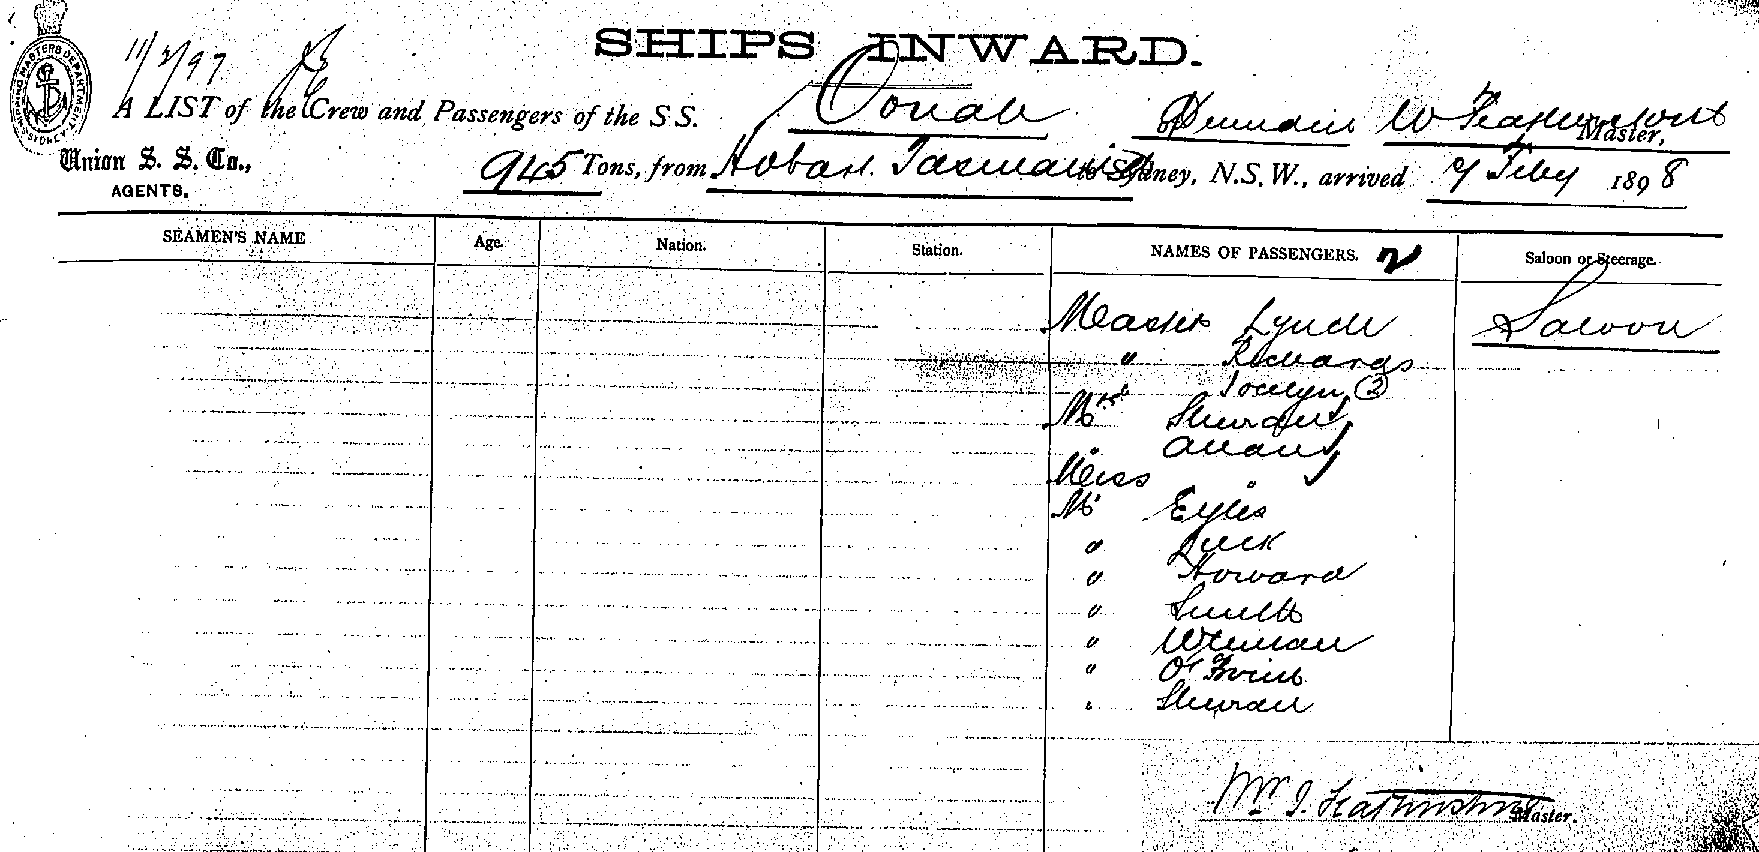 SHIPS INWARD.
11/2/97
SHIPPING MASTERS DEPARTMENT
A LIST of the Crew and Passengers of the S.S. Oonah of W Master,
Union S. S. Co.,
AGENTS.
945 Tons, from Hobart Tasmania to Sydney, N.S.W., arrived 7 Feby 1898
SEAMEN'S NAME Age. Nation. Station. NAMES OF PASSENGERS. 2 Saloon or Steerage.
Master Lynch Saloon
" Richards
Jocelyn (2)
Mrs Stewart
" Allan
Miss "
Mr Eyles
" Luck
" Howard
" Smith
"
"
" Stewart
Master.